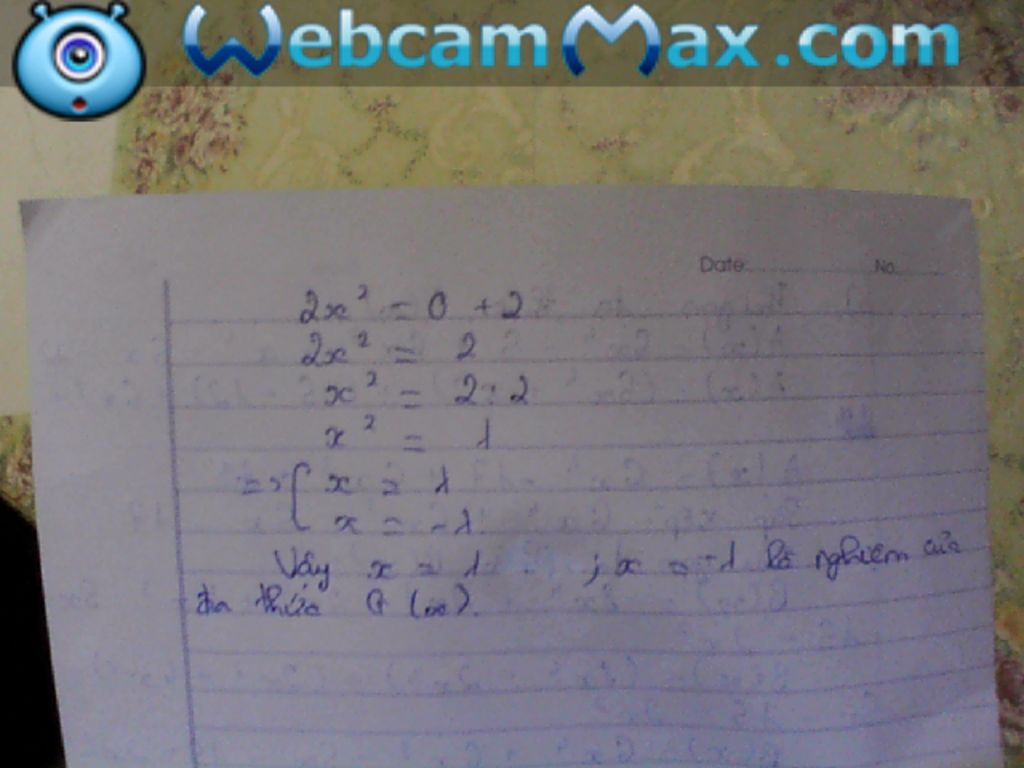 WebcamMax.com
Date No
2x² = 0 + 2
2x² = 2
x² = 2 : 2
x² = 1
=> [ x = 1
x = -1
Vậy x = 1 ; x = -1 là nghiệm của
đa thức (x).